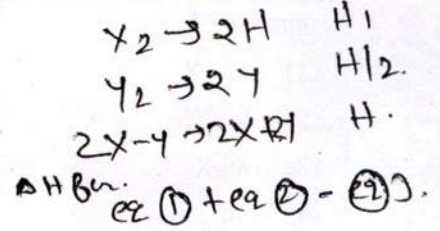 X₂ → 2H H₁
Y₂ → 2Y H/2.
2X-Y → 2X+2Y H.
ΔH for.
eq ① + eq ② - eq 3.